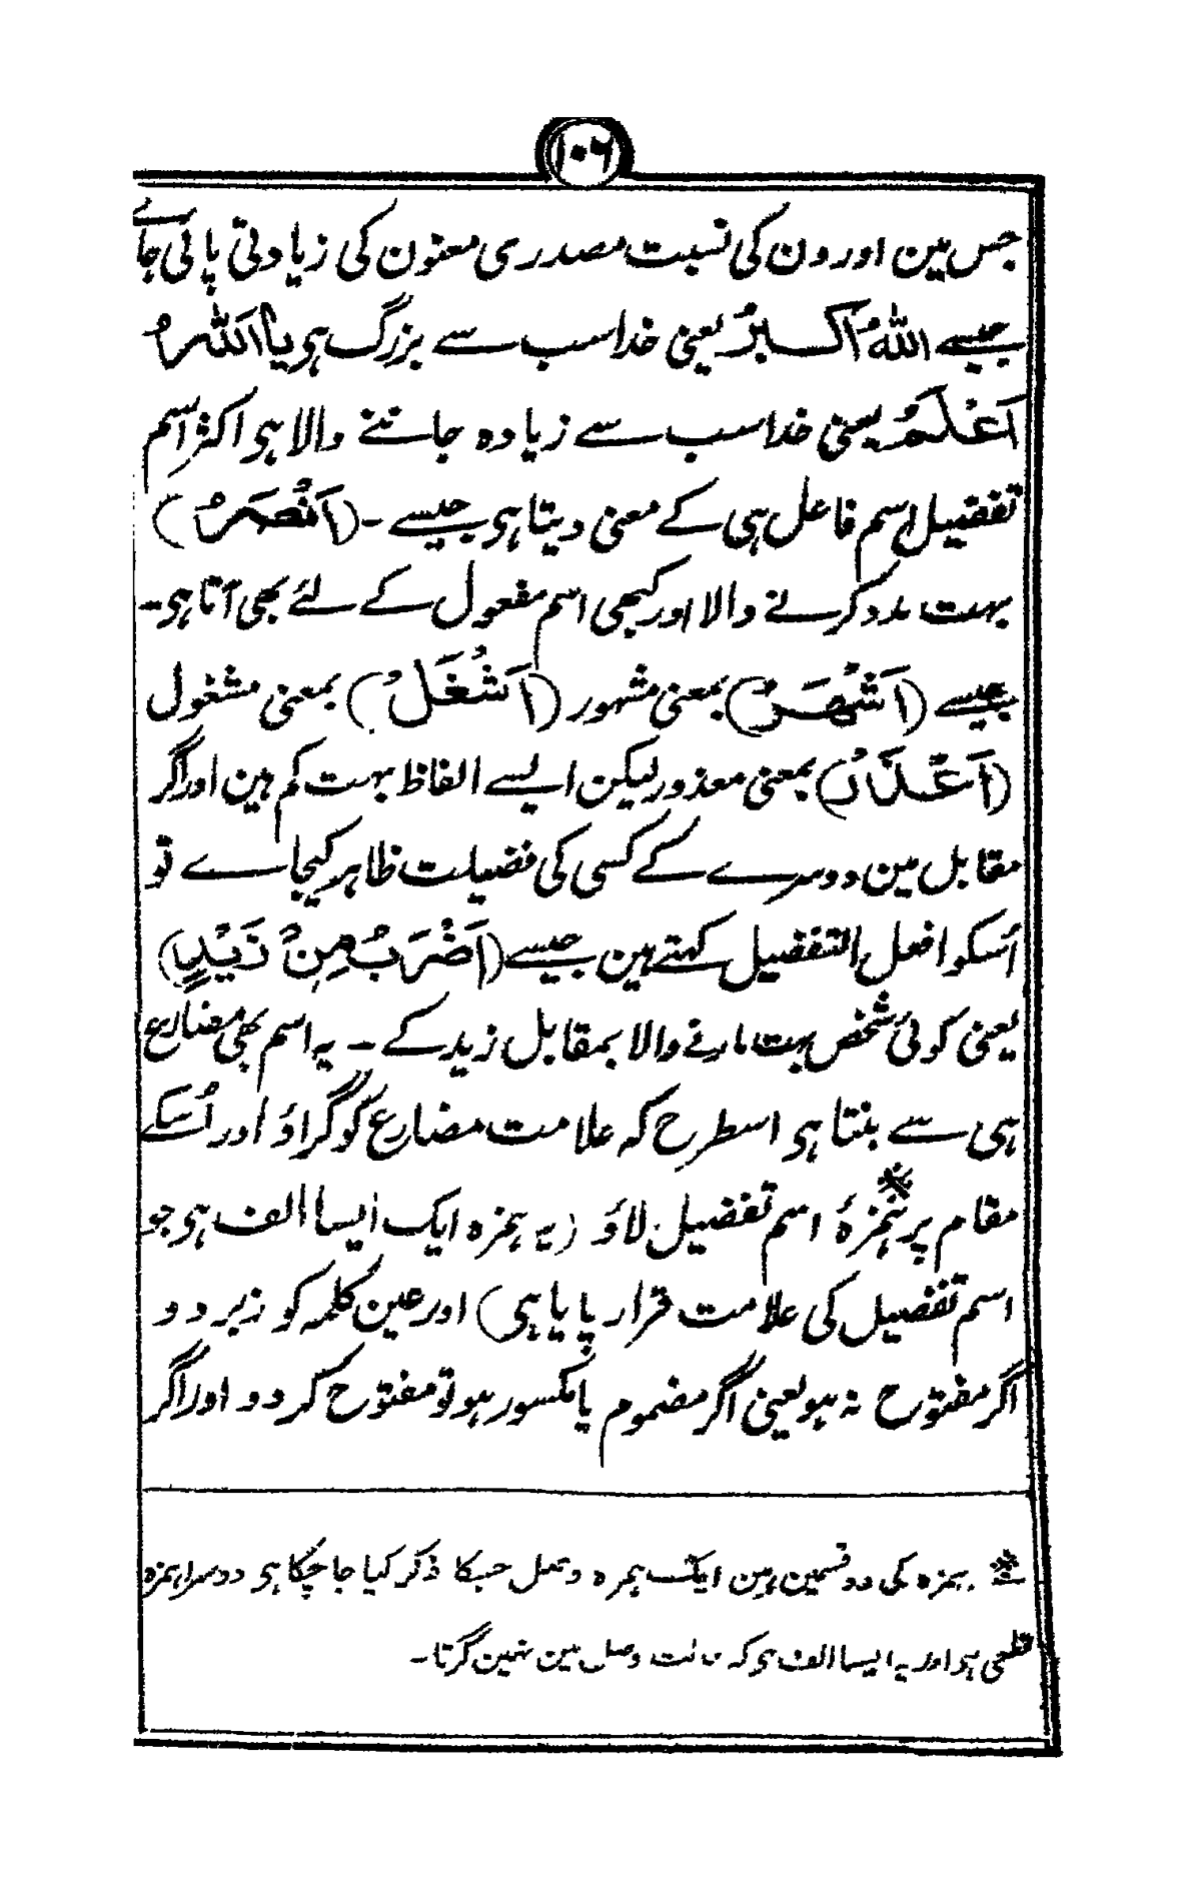 ۱۰۶
جس مین اورون کی نسبت مصدری معنون کی زیادتی پائی جائے
جیسے اللّٰهُ اَکْبَرُ یعنی خدا سب سے بزرگ ہی یا اَللّٰهُ
اَعْلَمُ یعنی خدا سب سے زیادہ جاننے والا ہی اکثر اسم
تفضیل اسم فاعل ہی کے معنی دیتا ہی جیسے ۔ (اَنْصَرُ)
بہت مدد کرنے والا اور کبھی اسم مفعول کے لئے بھی آتا ہی ۔
جیسے (اَشْهَرُ) بمعنی مشہور (اَشْغَلُ) بمعنی مشغول
(اَعْذَرُ) بمعنی معذور لیکن ایسے الفاظ بہت کم ہین اور اگر
مقابل مین دوسرے کے کسی کی فضیلت ظاہر کیجاے تو
اُسکو افعل التفضیل کہتے ہین جیسے (اَضْرَبُ مِنْ زَیْدٍ)
یعنی کوئی شخص بہت مارنے والا بمقابل زید کے ۔ یہ اسم بھی مضارع
ہی سے بنتا ہی اسطرح کہ علامت مضارع کو گراؤ اور اُسکے
مقام پر ہمزۂ اسم تفضیل لاؤ (یہ ہمزہ ایک ایسا الف ہی جو
اسم تفضیل کی علامت قرار پایا ہی) اور عین کلمہ کو زبر دو
اگر مفتوح نہ ہو یعنی اگر مضموم یا مکسور ہو تو مفتوح کر دو اور اگر
※ ہمزہ کی دو قسمین ہین ایک ہمزہ وصل جسکا ذکر کیا جا چکا ہی دوسرا ہمزہ
قطعی ہی اور یہ ایسا الف ہی کہ حالت وصل مین نہین گرتا ۔